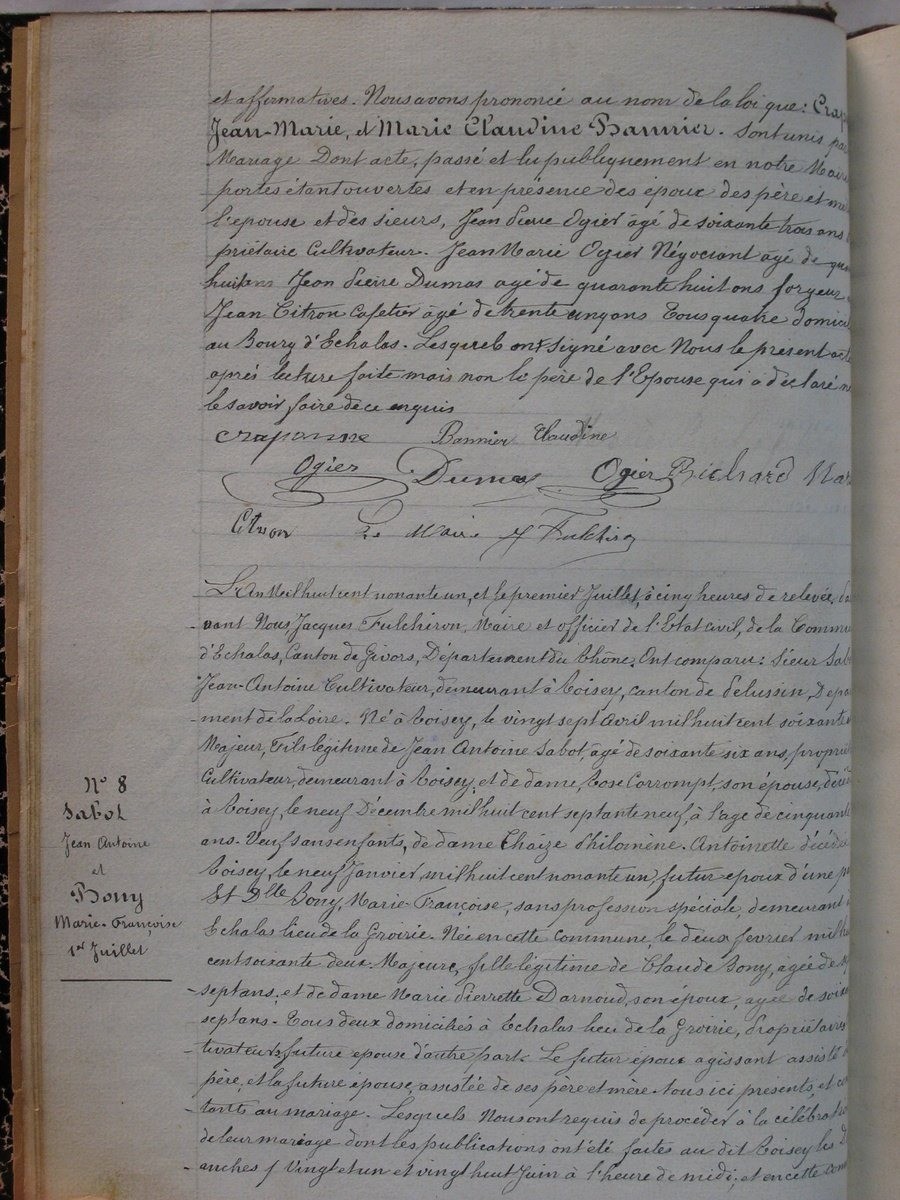 et affirmatives. Nous avons prononcé au nom de la loi que: Crap
Jean-Marie, et Marie Claudine Bannier. Sont unis par
Mariage Dont acte, passé et lu publiquement en notre Mairie
portes étant ouvertes et en présence des époux des père et
l'epouse et des sieurs, Jean Pierre Ogier âgé de soixante trois ans
priétaire Cultivateur. Jean Marie Ogier Négociant âgé de
huit ans Jean Pierre Dumas agé de quarante huit ans forgeur
Jean Citron Cafetier âgé de trente un ans Tous quatre domici
au Bourg d'Echalas. Lesquels ont signé avec Nous le présent acte
après lecture faite mais non le père de l'Epouse qui a déclaré ne
le savoir faire de ce enquis
Craponne Bannier Claudine
Ogier Dumas Ogier Richard Mar
Citron Le Maire J Fulchiron
L'An Mil huit cent nonante un, et le premier Juillet, à cinq heures de relevée, d
vant Nous Jacques Fulchiron, Maire et officier de l'Etat civil, de la Commu
d'Echalas, Canton de Givors, Département du Rhône. Ont comparu: Sieur Sab
Jean-Antoine Cultivateur, demeurant à Roisey, canton de Pelussin, Depar
ment de la Loire. Né à Roisey, le vingt sept Avril mil huit cent soixante
Majeur, Fils légitime de Jean Antoine Sabot, âgé de soixante six ans, proprié
Cultivateur, demeurant à Roisey, et de dame, Rose Corrompt, son épouse, décé
à Roisey, le neuf Décembre mil huit cent septante neuf, à l'age de cinquante
ans. Veuf sans enfants, de dame Chaize Philomène. Antoinette décédé
Roisey, le neuf Janvier mil huit cent nonante un, futur epoux d'une p
Et Dlle Bony, Marie-Françoise, sans profession spéciale, demeurant à
Echalas lieu de la Groirie. Née en cette commune, le deux fevrier mil hu
cent soixante deux. Majeure, fille légitime de Claude Bony, agée de s
sept ans, et de dame Marie Pierrette Darnoud, son époux, agée de soixa
sept ans. Tous deux domiciliés à Echalas lieu de la Groirie, Propriétaires
tivateurs, future epouse d'autre part. Le futur époux agissant assisté
père, et la future épouse, assistée de ses père et mère. tous ici présents, et con
tants au mariage. Lesquels Nous ont requis de procéder à la célébration
de leur mariage dont les publications ont été faites au dit Roisey les D
anches, Vingt et un et vingt huit Juin à l'heure de midi, et en cette com
N° 8
Sabot
Jean Antoine
et
Bony
Marie-Françoise
1er Juillet